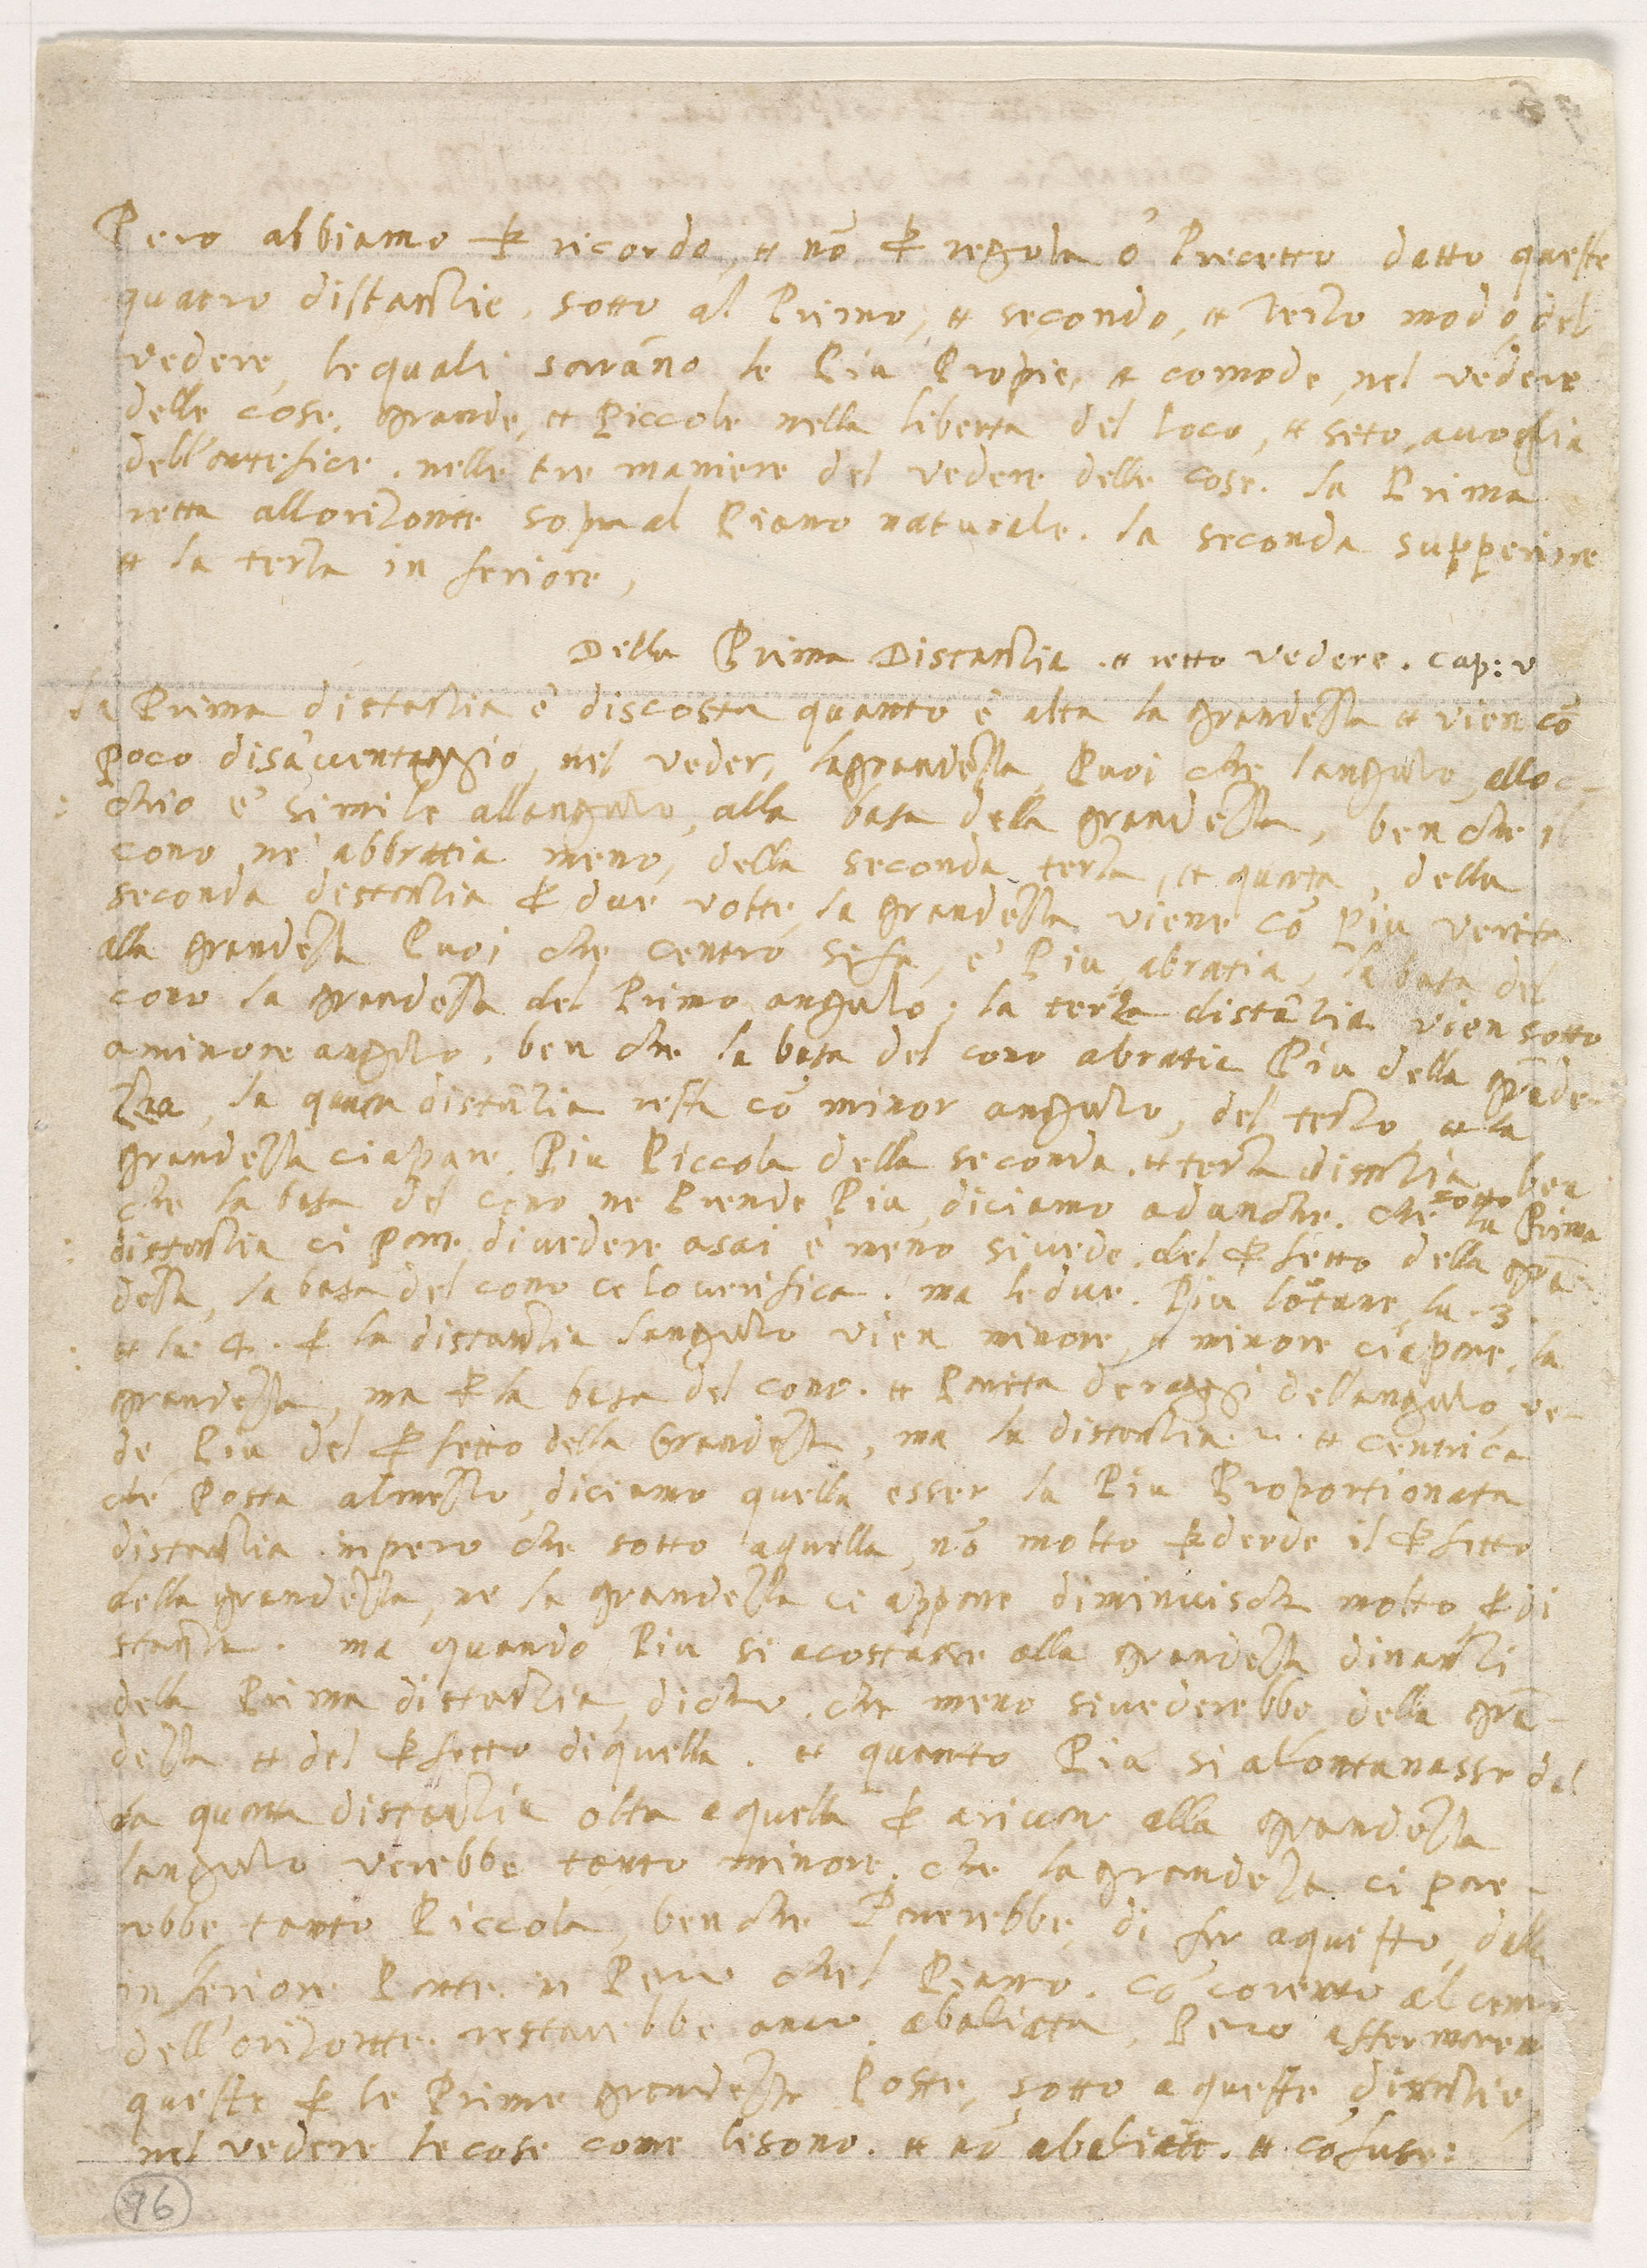 Pero abbiamo ꝑ ricordo, et nõ ꝑ regola o Precetto datto queste
quatro distantie, sotto al Primo, et secondo, et terzo modo del
vedere, lequali sarãno le Piu Propie, et comode, nel vedere
delle cose, grande, et Piccole nella liberta del loco, et seto, avoglia
dell'artefice. nelle tre maniere del vedere delle cose. la Prima
retta allorizonte sopra al Piano naturale. la seconda supperiore
et la terza in feriore,
Della Prima Distantia. et retto vedere. Cap: v
La Prima distantia è discosta quanto è alta la grandezza et vien cõ
poco disavventaggio, nel veder, lagrandezza, Puoi che langulo, alloc-
chio è simile allangulo, alla basa della grandezza, ben che il
cono ne abbratia meno, della seconda terza, et quarta, della
seconda destantia ꝑ due volte, la grandezza viene cõ Piu verita
alla grandezza Puoi che centro sifa, e Piu abratia, la basa del
cono la grandezza del Primo angulo; la terza distãtia vien sotto
aminore angulo. ben che la basa del cono abratia Piu della grãde-
zza, la quarta distãtia resta cõ minor angulo, del terzo, et la
grandezza ciapare Piu Piccola della seconda. et terza distantia ben
che la basa del cono ne Prende Piu, diciamo adunche. che sotto la Prima
distantia ci pare divedere asai e meno sivede. del ꝑfetto della grã-
dezza, la basa del cono ce loverifica. ma ledue. Piu lõtane, la. 3.
et la 4. ꝑ la distantia langulo vien minore, et minore ciapare, la
grandezza, ma ꝑ la basa del cono. et Parita deraggi dellangulo, ve-
de Piu del ꝑfetto della Grandezza, ma la distantia. 2. et centrica
che Posta almezzo, diciamo quella esser la Piu Proportionata
distantia inpero che sotto aquella, nõ molto ꝑderde il ꝑfetto
della grandezza, ne la grandezza ci appare diminuischa molto ꝑ di
stantia. ma quando Piu si acostasse alla grandezza dinanti
della Prima distantia, dicho. che meno sivederebbe della grã-
dezza et del ꝑfetto diquella. et quanto Piu si alontanasse dal
la quarta distantia olta aquella ꝑ arivare alla grandezza
langulo verebbe tanto minore, che lagrandezza ci pare-
rebbe tanto Piccola, benche Parerebbe, di far aquesto, dalla
inferiore Parte. in Pero chel Piano. cõcorento al
dell'orizontte. restarebbe anco abaliata, Pero affermaren
queste ꝑ le Prime grandezze Poste, sotto aqueste distantie,
nel vedere lecose come lesono. et nõ abaliate. et cõfuse:
76